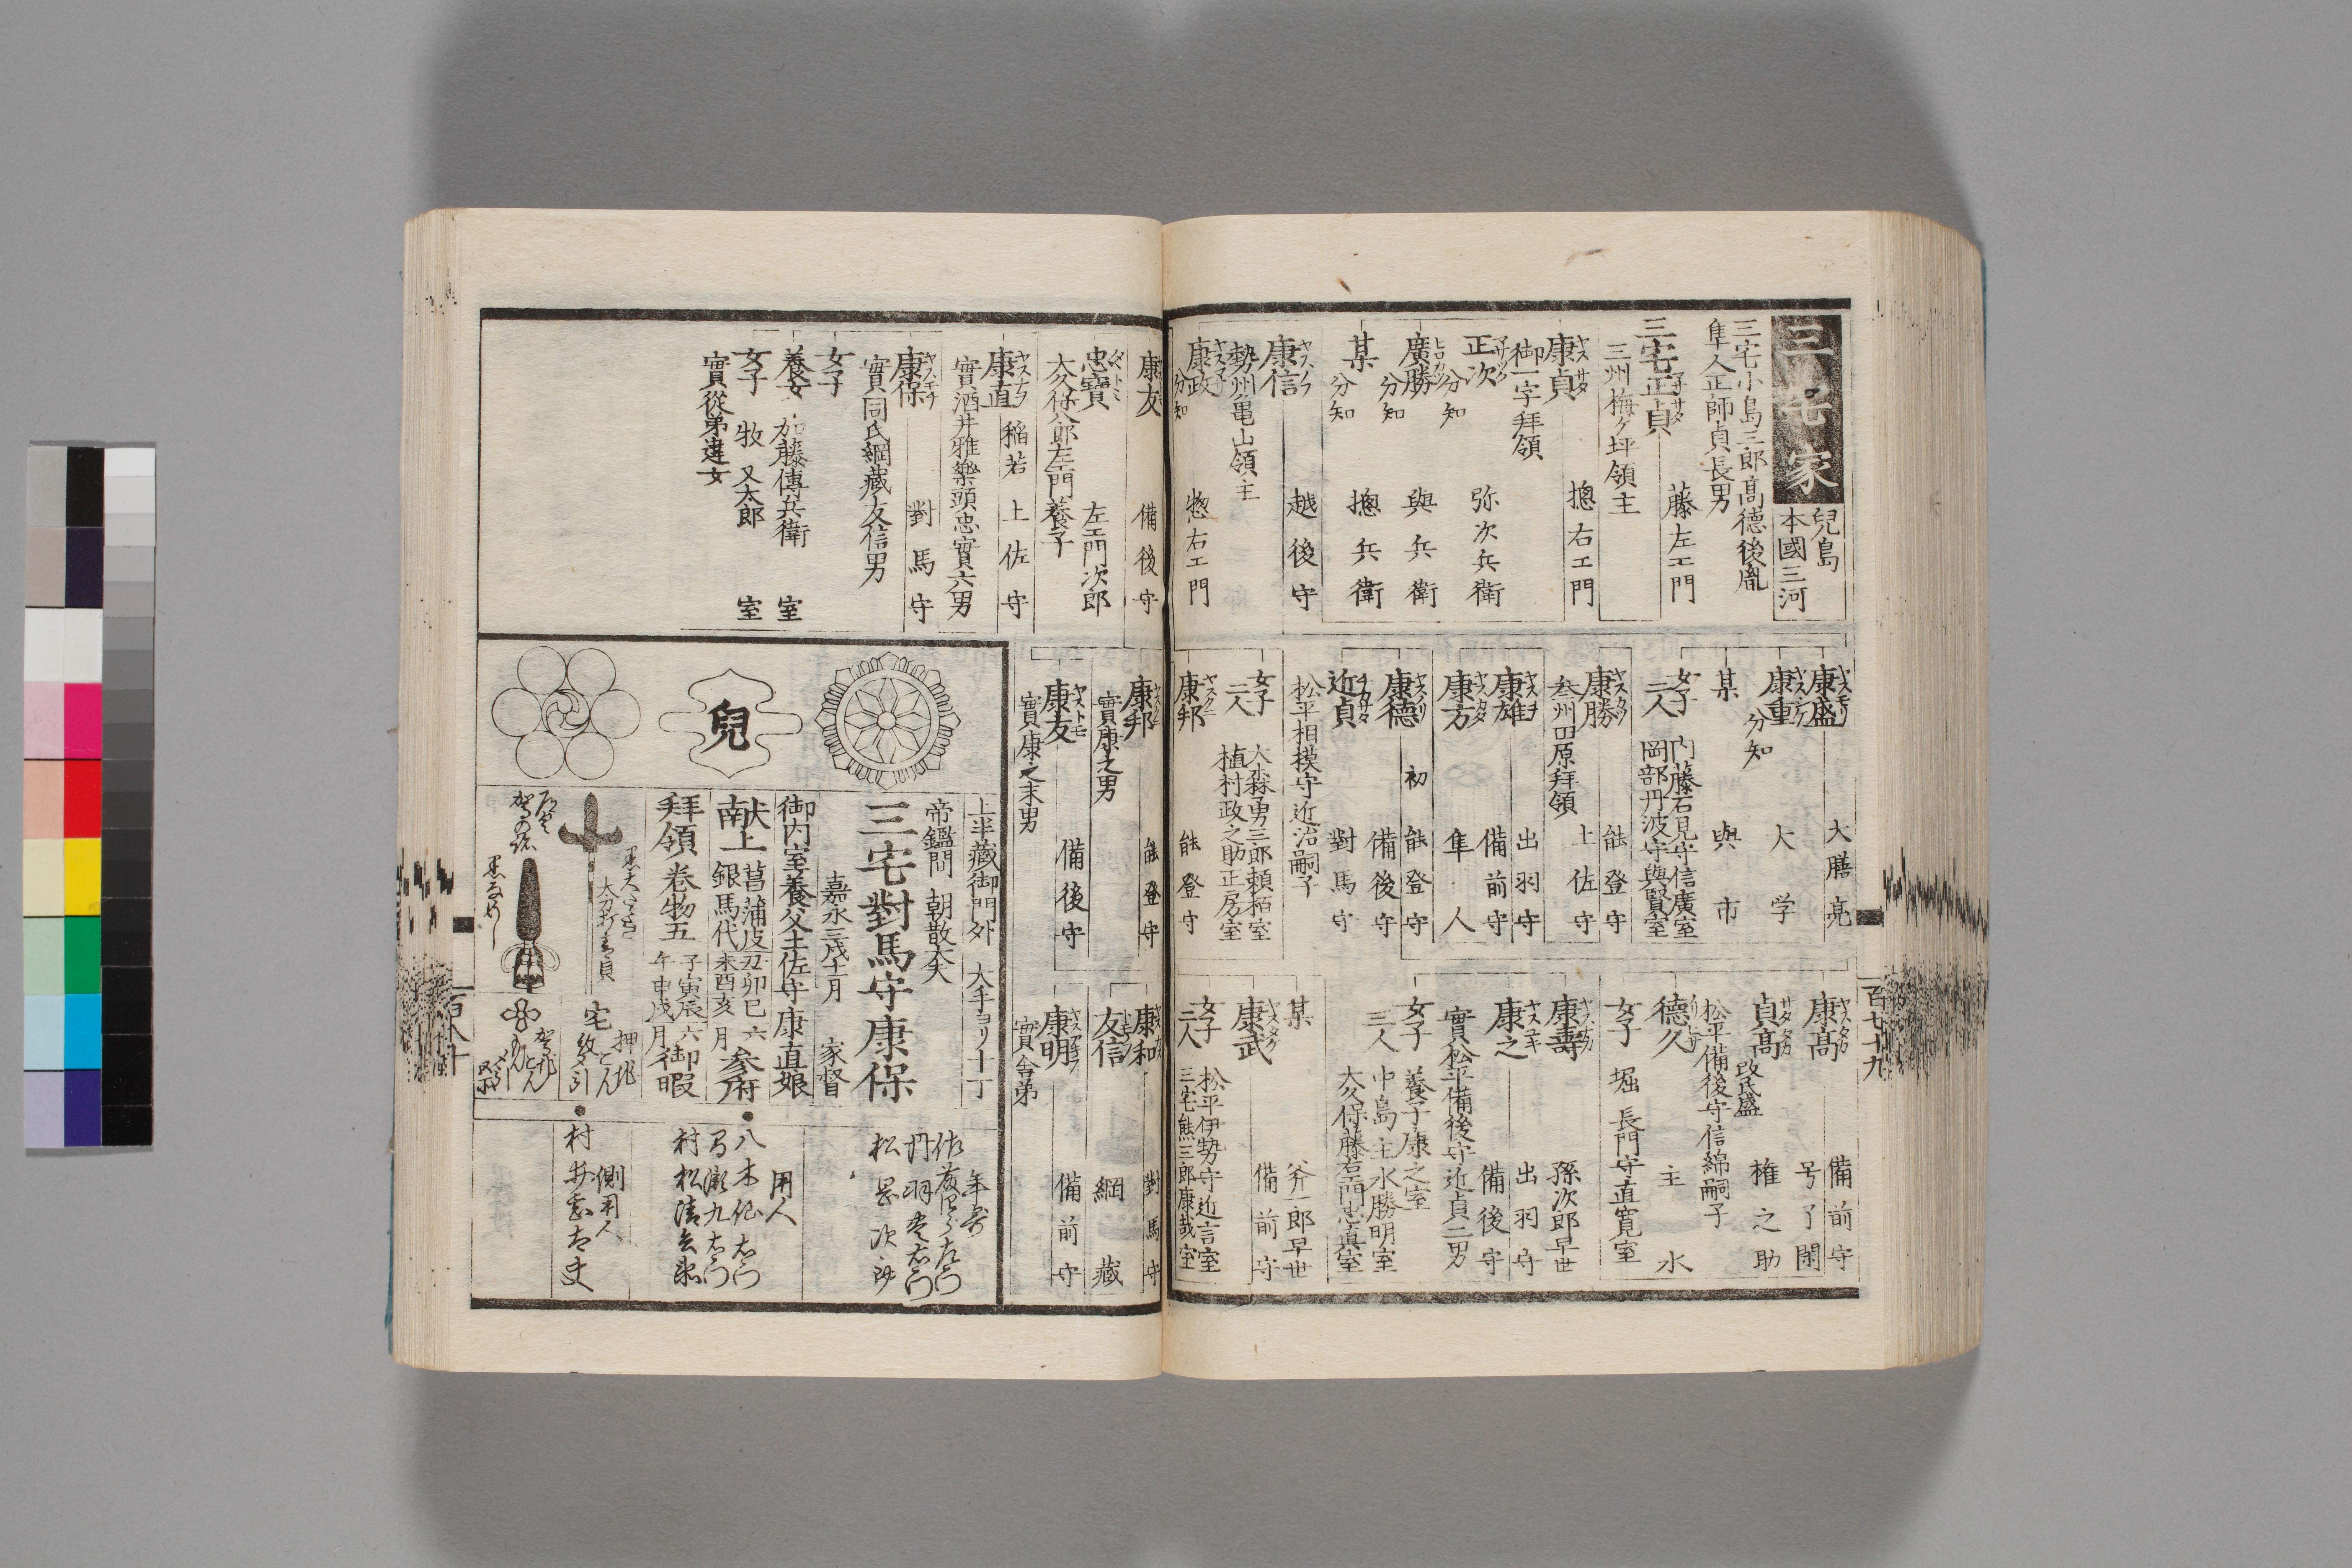 三宅家
兒島
本國三河
三宅小島三郎高德後胤
隼人正師貞長男
三宅正貞 藤左エ門
三州梅ケ坪領主
康貞 ヤスサダ 摠右エ門
御一字拜領
正次 マサツグ 分知 弥次兵衛
廣勝 ヒロカツ 分知 與兵衛
某 分知 摠兵衛
康信 ヤスノブ 越後守
勢州亀山領主
康政 分知 惣右エ門
康盛 ヤスモリ 大膳亮
康重 ヤスシゲ 分知 大学
某 與市
女子二人 内藤石見守信廣室
岡部丹波守與賢室
康勝 ヤスカツ 能登守
叁州田原拜領 土佐守
康雄 ヤスヲ 出羽守
備前守
康方 ヤスカタ 隼人
康德 ヤスノリ 初能登守
備後守
近貞 チカサダ 對馬守
松平相摸守近治嗣子
女子二人 大森勇三郎頼栢室
植村政之助正房室
康邦 ヤスクニ 能登守
康高 ヤスタカ 備前守
号了閑
貞高 サダタカ 改氏盛 権之助
松平備後守信綿嗣子
德久 主水
女子 堀長門守直寛室
康壽 孫次郎早世
康之 ヤスユキ 出羽守
備後守
實松平備後守近貞二男
女子三人 養子康之室
中島主水勝明室
大久保藤右エ門忠眞室
某 斧一郎早世
康武 ヤスタケ 備前守
女子二人 松平伊勢守近言室
三宅熊三郎康哉室
康友 備後守
忠寶 左エ門次郎
大久保八郎左エ門養子
康直 ヤスナヲ 稲若 土佐守
實酒井雅樂頭忠實六男
康保 ヤスモチ 對馬守
實同氏綱藏友信男
女子
養女 加藤傳兵衛室
女子 牧又太郎室
實從弟違女
康邦 能登守
實康之男
康友 ヤストモ 備後守
實康之末男
康和 對馬守
友信 綱藏
康明 備前守
實舎弟
兒
上半藏御門外 大手ヨリ十丁
帝鑑間 朝散大夫
三宅對馬守康保
嘉永三戌十一月 家督
御内室養父土佐守康直娘
献上 菖蒲皮 銀馬代
丑卯巳未酉亥 六月 参府
拜領 卷物五
子寅辰午申戌 六月 御暇
大刀打青貝
押
宅
年寄
丹羽
松岡次郎
用人
八木
村松
側用人
村井
百七十九
百八十